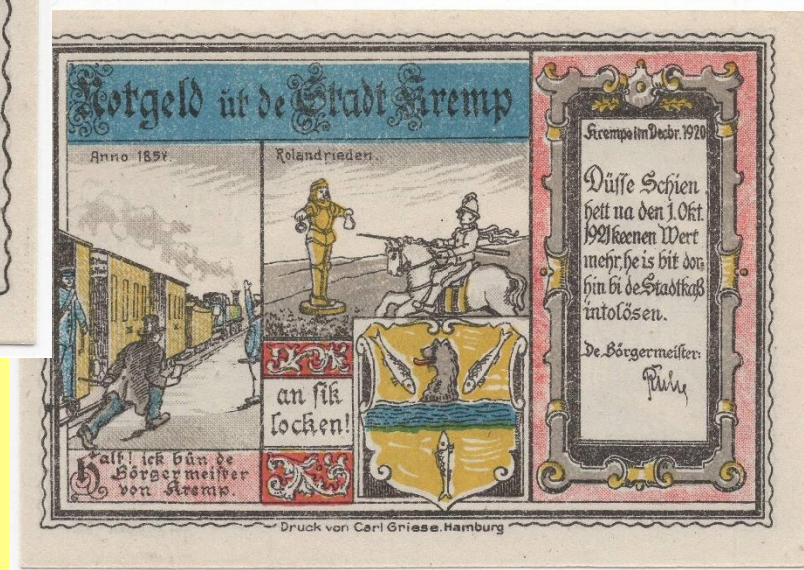 Notgeld üt de Stadt Kremp
Anno 1857.
Rolandrieden.
Halt! ick bün de
Börgermeister
von Kremp.
an sik
locken!
Krempe im Decbr. 1920
Düsse Schien
hett na den 1. Okt.
1921 keenen Wert
mehr, he is bit dor-
hin bi de Stadtkaß
intolösen.
De Börgermeister:
Druck von Carl Griese. Hamburg